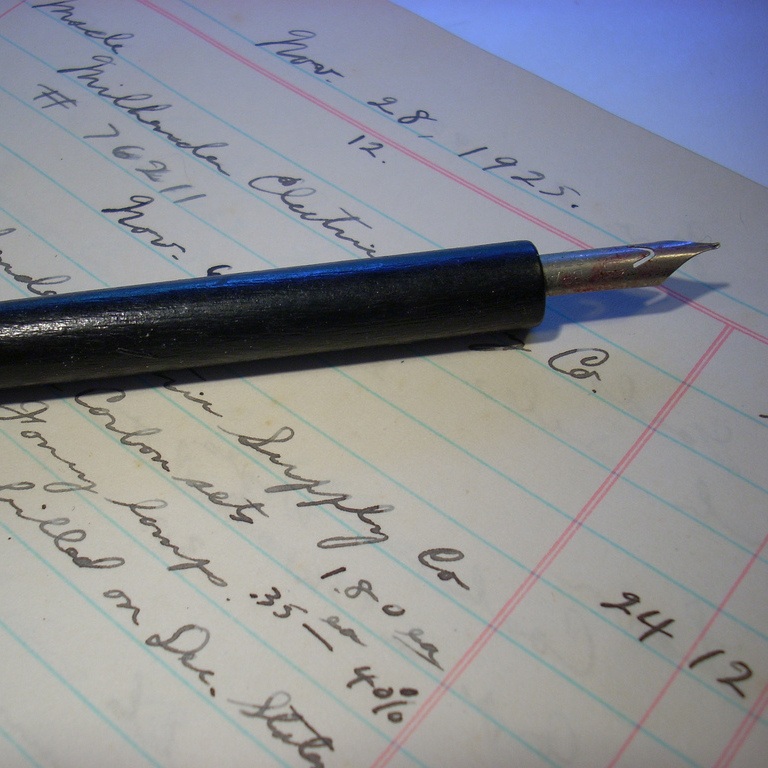 Nov. 28, 1925.
12.
Made
Milhender Electric
# 76211
Nov.
Co.
Supply Co
Carbon sets 1.80 ea
lamps. .35 ea 40%
billed on Dec.
24 12